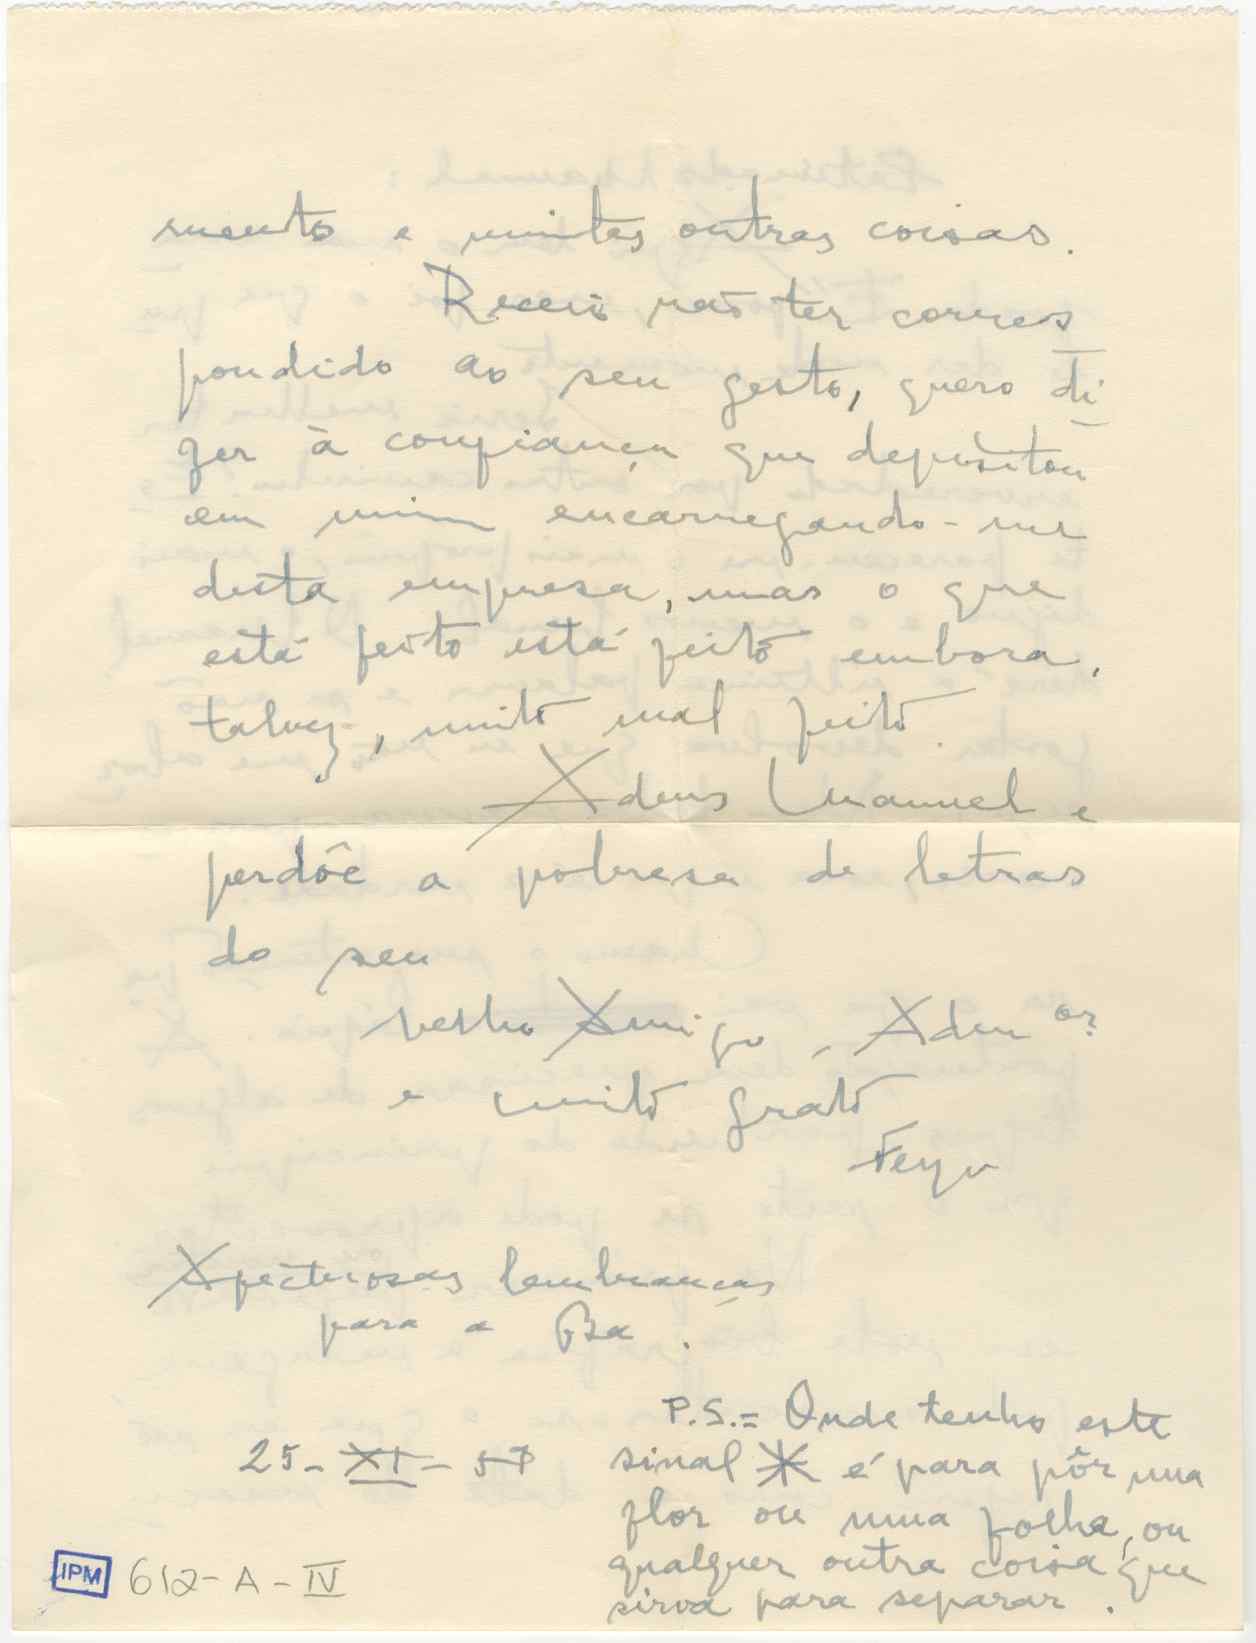 mento e muitas outras coisas.
Receio não ter corres
pondido ao seu gesto, quero di
zer à confiança que depositou
em mim encarregando-me
desta empresa, mas o que
está feito está feito embora,
talvez, muito mal feito.
Adeus Manuel e
perdôe a pobresa de letras
do seu
velho Amigo, Adm or
e muito grato
Feyo
Afectuosas lembranças
para a Ba.
25-XI-57
P.S.= Onde tenho este
sinal * é para pôr uma
flor ou uma folha, ou
qualquer outra coisa que
sirva para separar.
IPM 612-A-IV